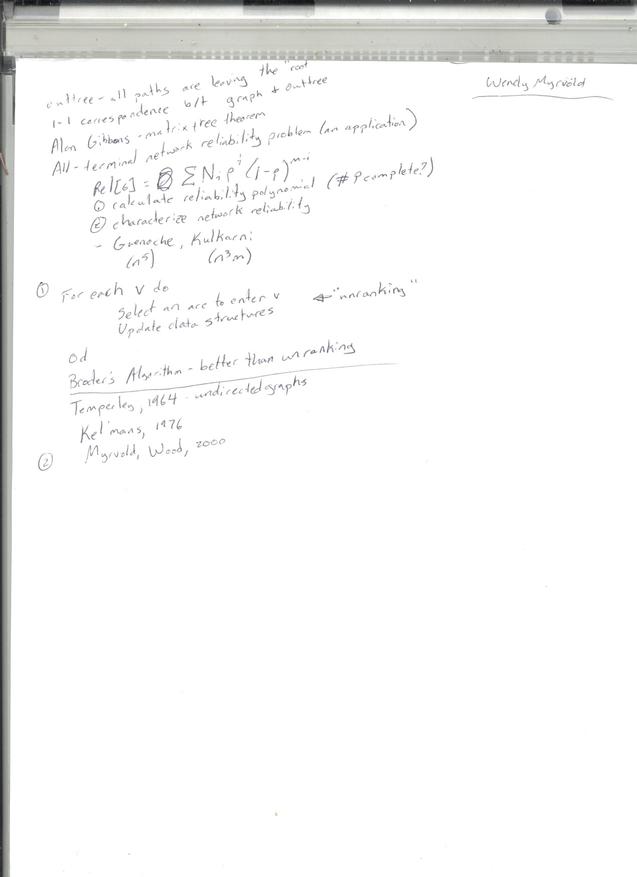 Wendy Myrvold
outtree - all paths are leaving the "root
1-1 correspondence b/t graph + outtree
Alan Gibbons - matrix tree theorem
All-terminal network reliability problem (an application)
Rel[G] = Σ Nᵢ pⁱ (1-p)ᵐ⁻ⁱ
① calculate reliability polynomial (#P complete?)
② characterize network reliability
- Guenoche, Kulkarni
(n⁵) (n³m)
① For each v do
Select an arc to enter v ← "unranking"
Update data structures
Od
Broder's Algorithm - better than unranking
Temperley, 1964 - undirected graphs
Kel'mans, 1976
② Myrvold, Wood, 2000